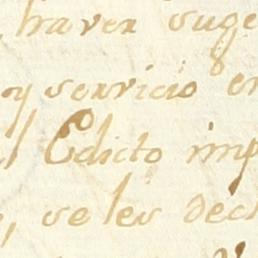 haver suge
y servicio en
l Edicto imp
, se les decl